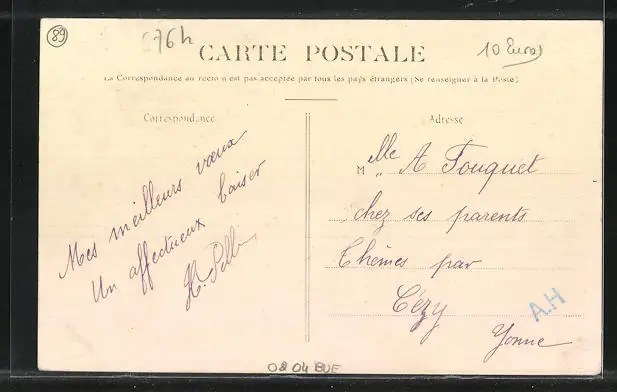 89
76h
10 Euros
CARTE POSTALE
La Correspondance au recto n'est pas acceptée par tous les pays étrangers (Se renseigner à la Poste)
Correspondance
Mes meilleurs vœux
Un affectueux baiser
Adresse
Melle A Fouquet
chez ses parents
Thèmes par
Cézy
Yonne
A.H
0804 BUE